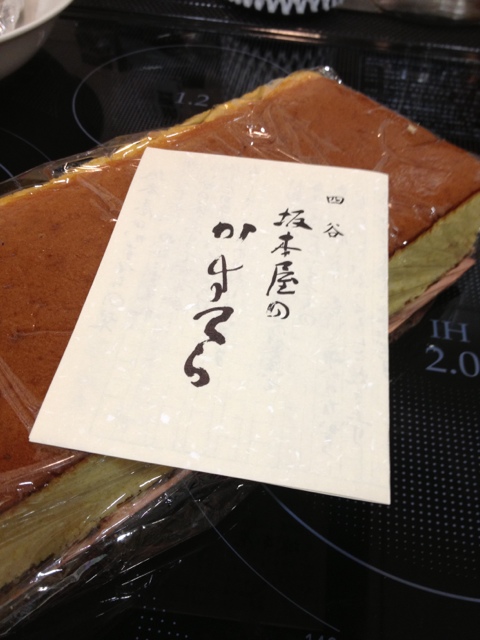 四谷
坂本屋の
かすてら
1.2
IH
2.0